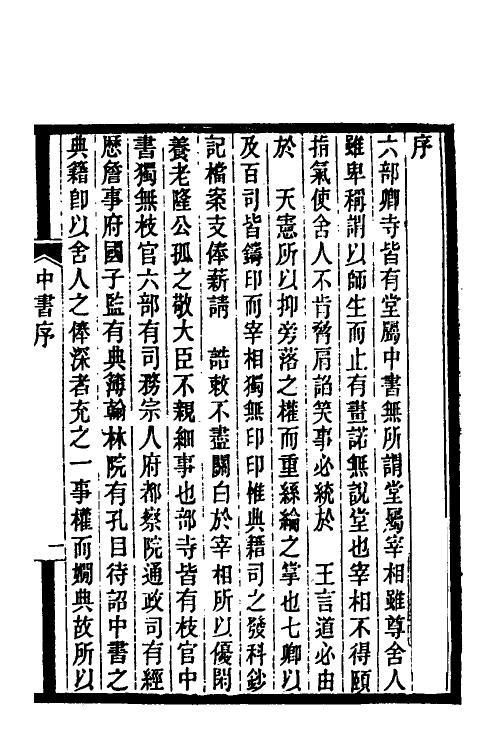 序
六部卿寺皆有堂屬中書無所謂堂屬宰相雖尊舍人
雖卑稱謂以師生而止有畫諾無說堂也宰相不得頤
指氣使舍人不肯脅肩諂笑事必統於　王言道必由
於　天憲所以抑旁落之權而重絲綸之掌也七卿以
及百司皆鑄印而宰相獨無印印惟典籍司之發科鈔
記檔案支俸薪請　誥敕不盡關白於宰相所以優閑
養老隆公孤之敬大臣不親細事也部寺皆有枝官中
書獨無枝官六部有司務宗人府都察院通政司有經
歷詹事府國子監有典簿翰林院有孔目待詔中書之
典籍卽以舍人之俸深者充之一事權而嫺典故所以
中書序
一